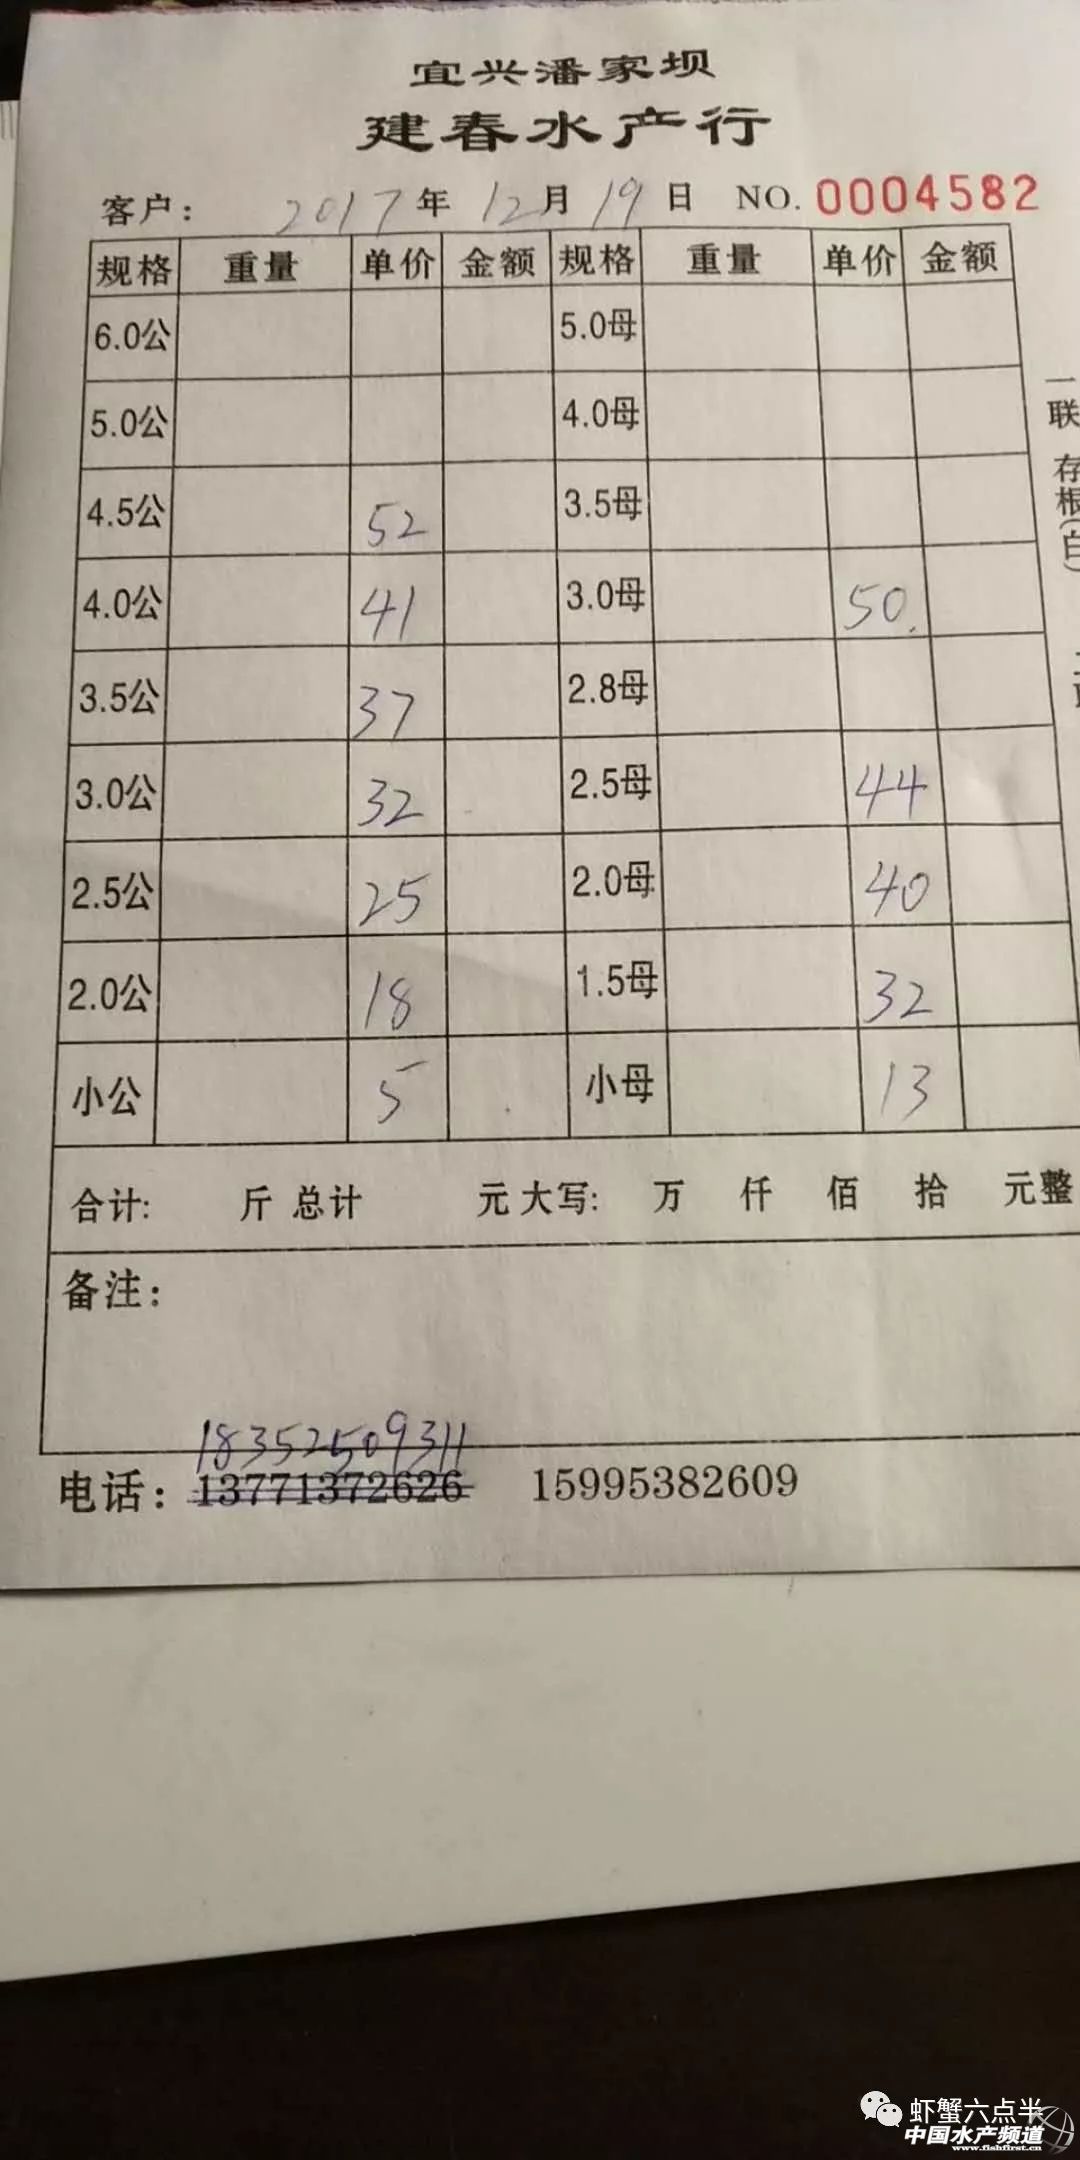 宜兴潘家坝
建春水产行
客户: 2017年 12月 19日 NO. 0004582
规格 重量 单价 金额 规格 重量 单价 金额
6.0公 5.0母
5.0公 4.0母
4.5公 52 3.5母
4.0公 41 3.0母 50.
3.5公 37 2.8母
3.0公 32 2.5母 44
2.5公 25 2.0母 40
2.0公 18 1.5母 32
小公 5 小母 13
合计: 斤 总计 元 大写: 万 仟 佰 拾 元整
备注:
18352509311
电话: 13771372626 15995382609
一联 存根(白)
虾蟹六点半
中国水产频道
www.fishfirst.cn